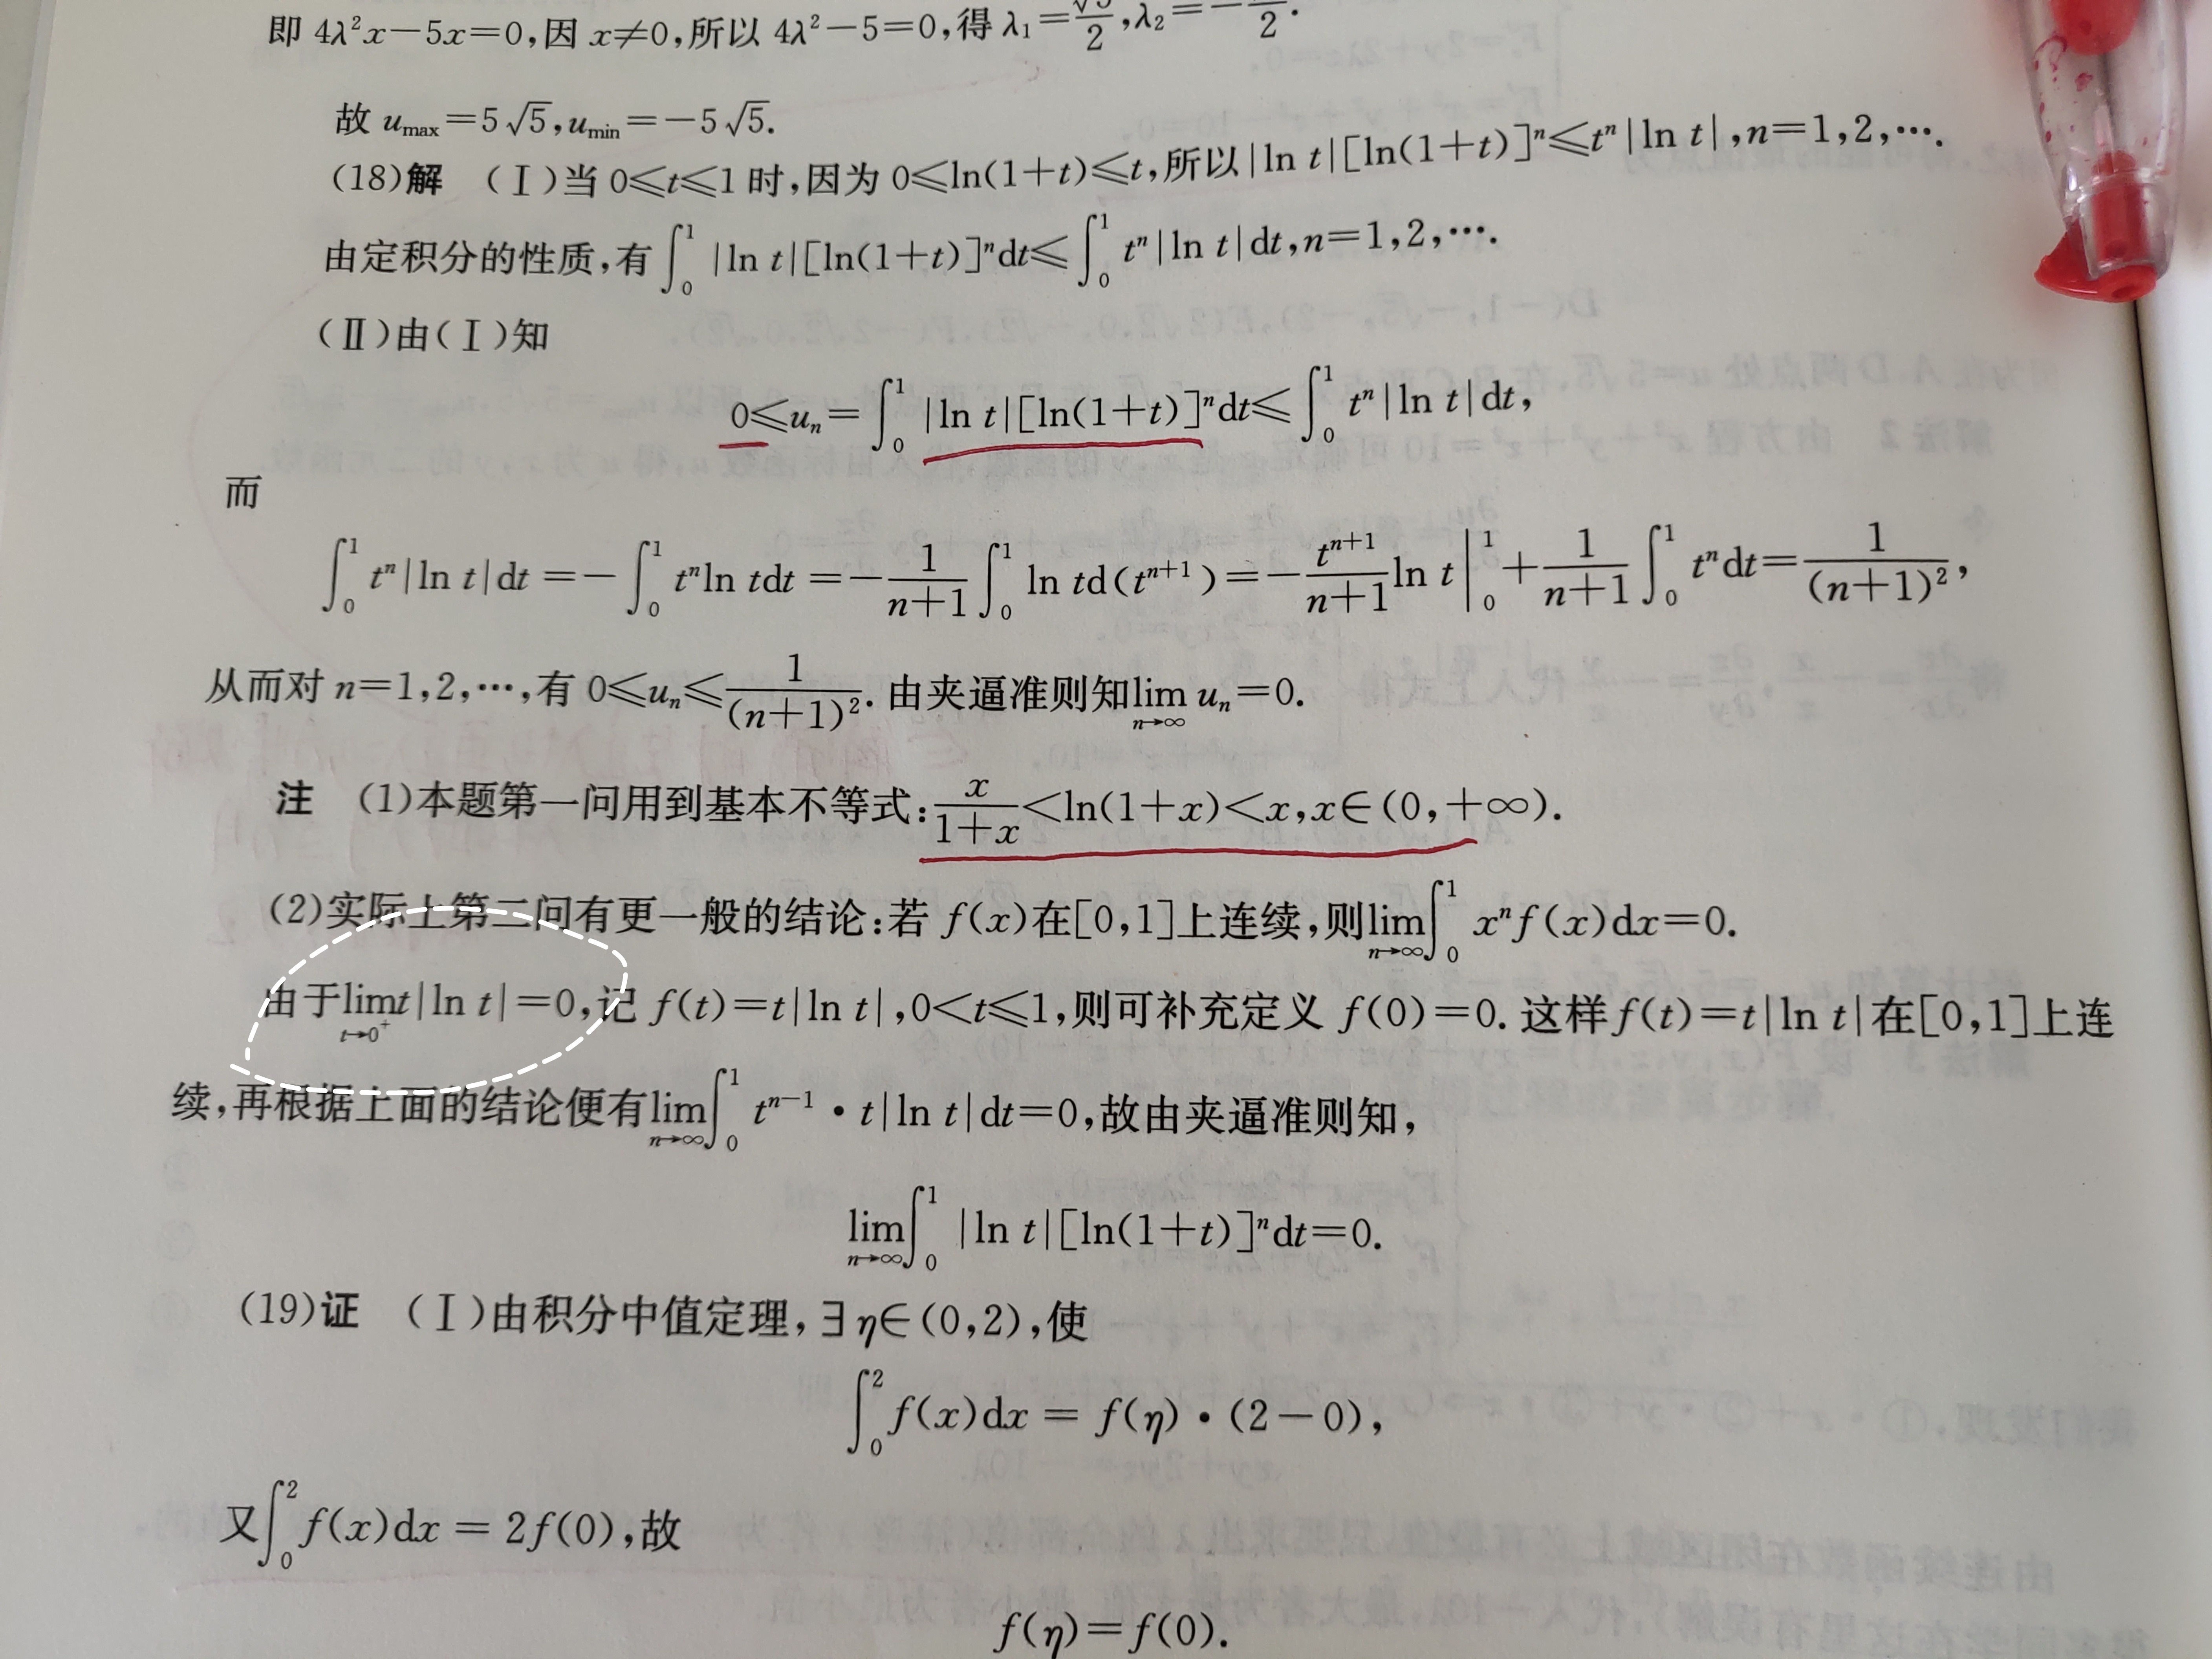 即 4λ²x－5x＝0,因 x≠0,所以 4λ²－5＝0,得 λ₁＝√5/2,λ₂＝－ /2.
故 u_max＝5√5,u_min＝－5√5.
(18)解 (Ⅰ)当 0≤t≤1 时,因为 0≤ln(1+t)≤t,所以|ln t|[ln(1+t)]ⁿ≤tⁿ|ln t|,n＝1,2,….
由定积分的性质,有∫₀¹|ln t|[ln(1+t)]ⁿdt≤∫₀¹tⁿ|ln t|dt,n＝1,2,….
(Ⅱ)由(Ⅰ)知
0≤uₙ＝∫₀¹|ln t|[ln(1+t)]ⁿdt≤∫₀¹tⁿ|ln t|dt,
而
∫₀¹tⁿ|ln t|dt＝－∫₀¹tⁿln tdt＝－1/(n+1)∫₀¹ln td(tⁿ⁺¹)＝－tⁿ⁺¹/(n+1) ln t|₀¹+1/(n+1)∫₀¹tⁿdt＝1/(n+1)²,
从而对 n＝1,2,…,有 0≤uₙ≤1/(n+1)². 由夹逼准则知lim_{n→∞} uₙ＝0.
注 (1)本题第一问用到基本不等式:x/(1+x)<ln(1+x)<x,x∈(0,+∞).
(2)实际上第二问有更一般的结论:若 f(x)在[0,1]上连续,则lim_{n→∞}∫₀¹xⁿf(x)dx＝0.
由于lim_{t→0⁺}t|ln t|＝0,记 f(t)＝t|ln t|,0<t≤1,则可补充定义 f(0)＝0. 这样f(t)＝t|ln t|在[0,1]上连
续,再根据上面的结论便有lim_{n→∞}∫₀¹tⁿ⁻¹・t|ln t|dt＝0,故由夹逼准则知,
lim_{n→∞}∫₀¹|ln t|[ln(1+t)]ⁿdt＝0.
(19)证 (Ⅰ)由积分中值定理,∃η∈(0,2),使
∫₀²f(x)dx＝f(η)・(2－0),
又∫₀²f(x)dx＝2f(0),故
f(η)＝f(0).